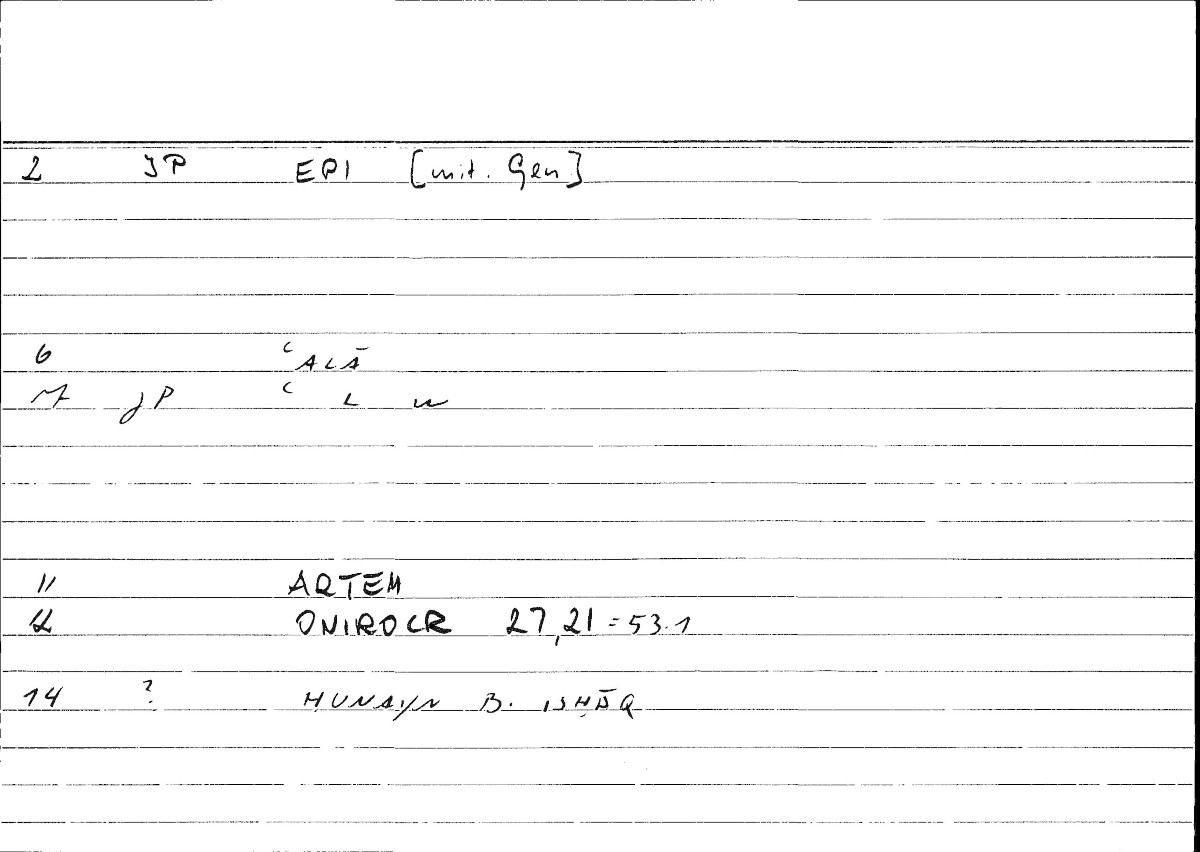 2 JP EPI [mit. Gen]
6 ʿALĀ
7 JP ʿ L W
11 ARTEM
12 ONIROCR 27,21 = 53.1
14 ? ḤUNAYN B. ISḤĀQ